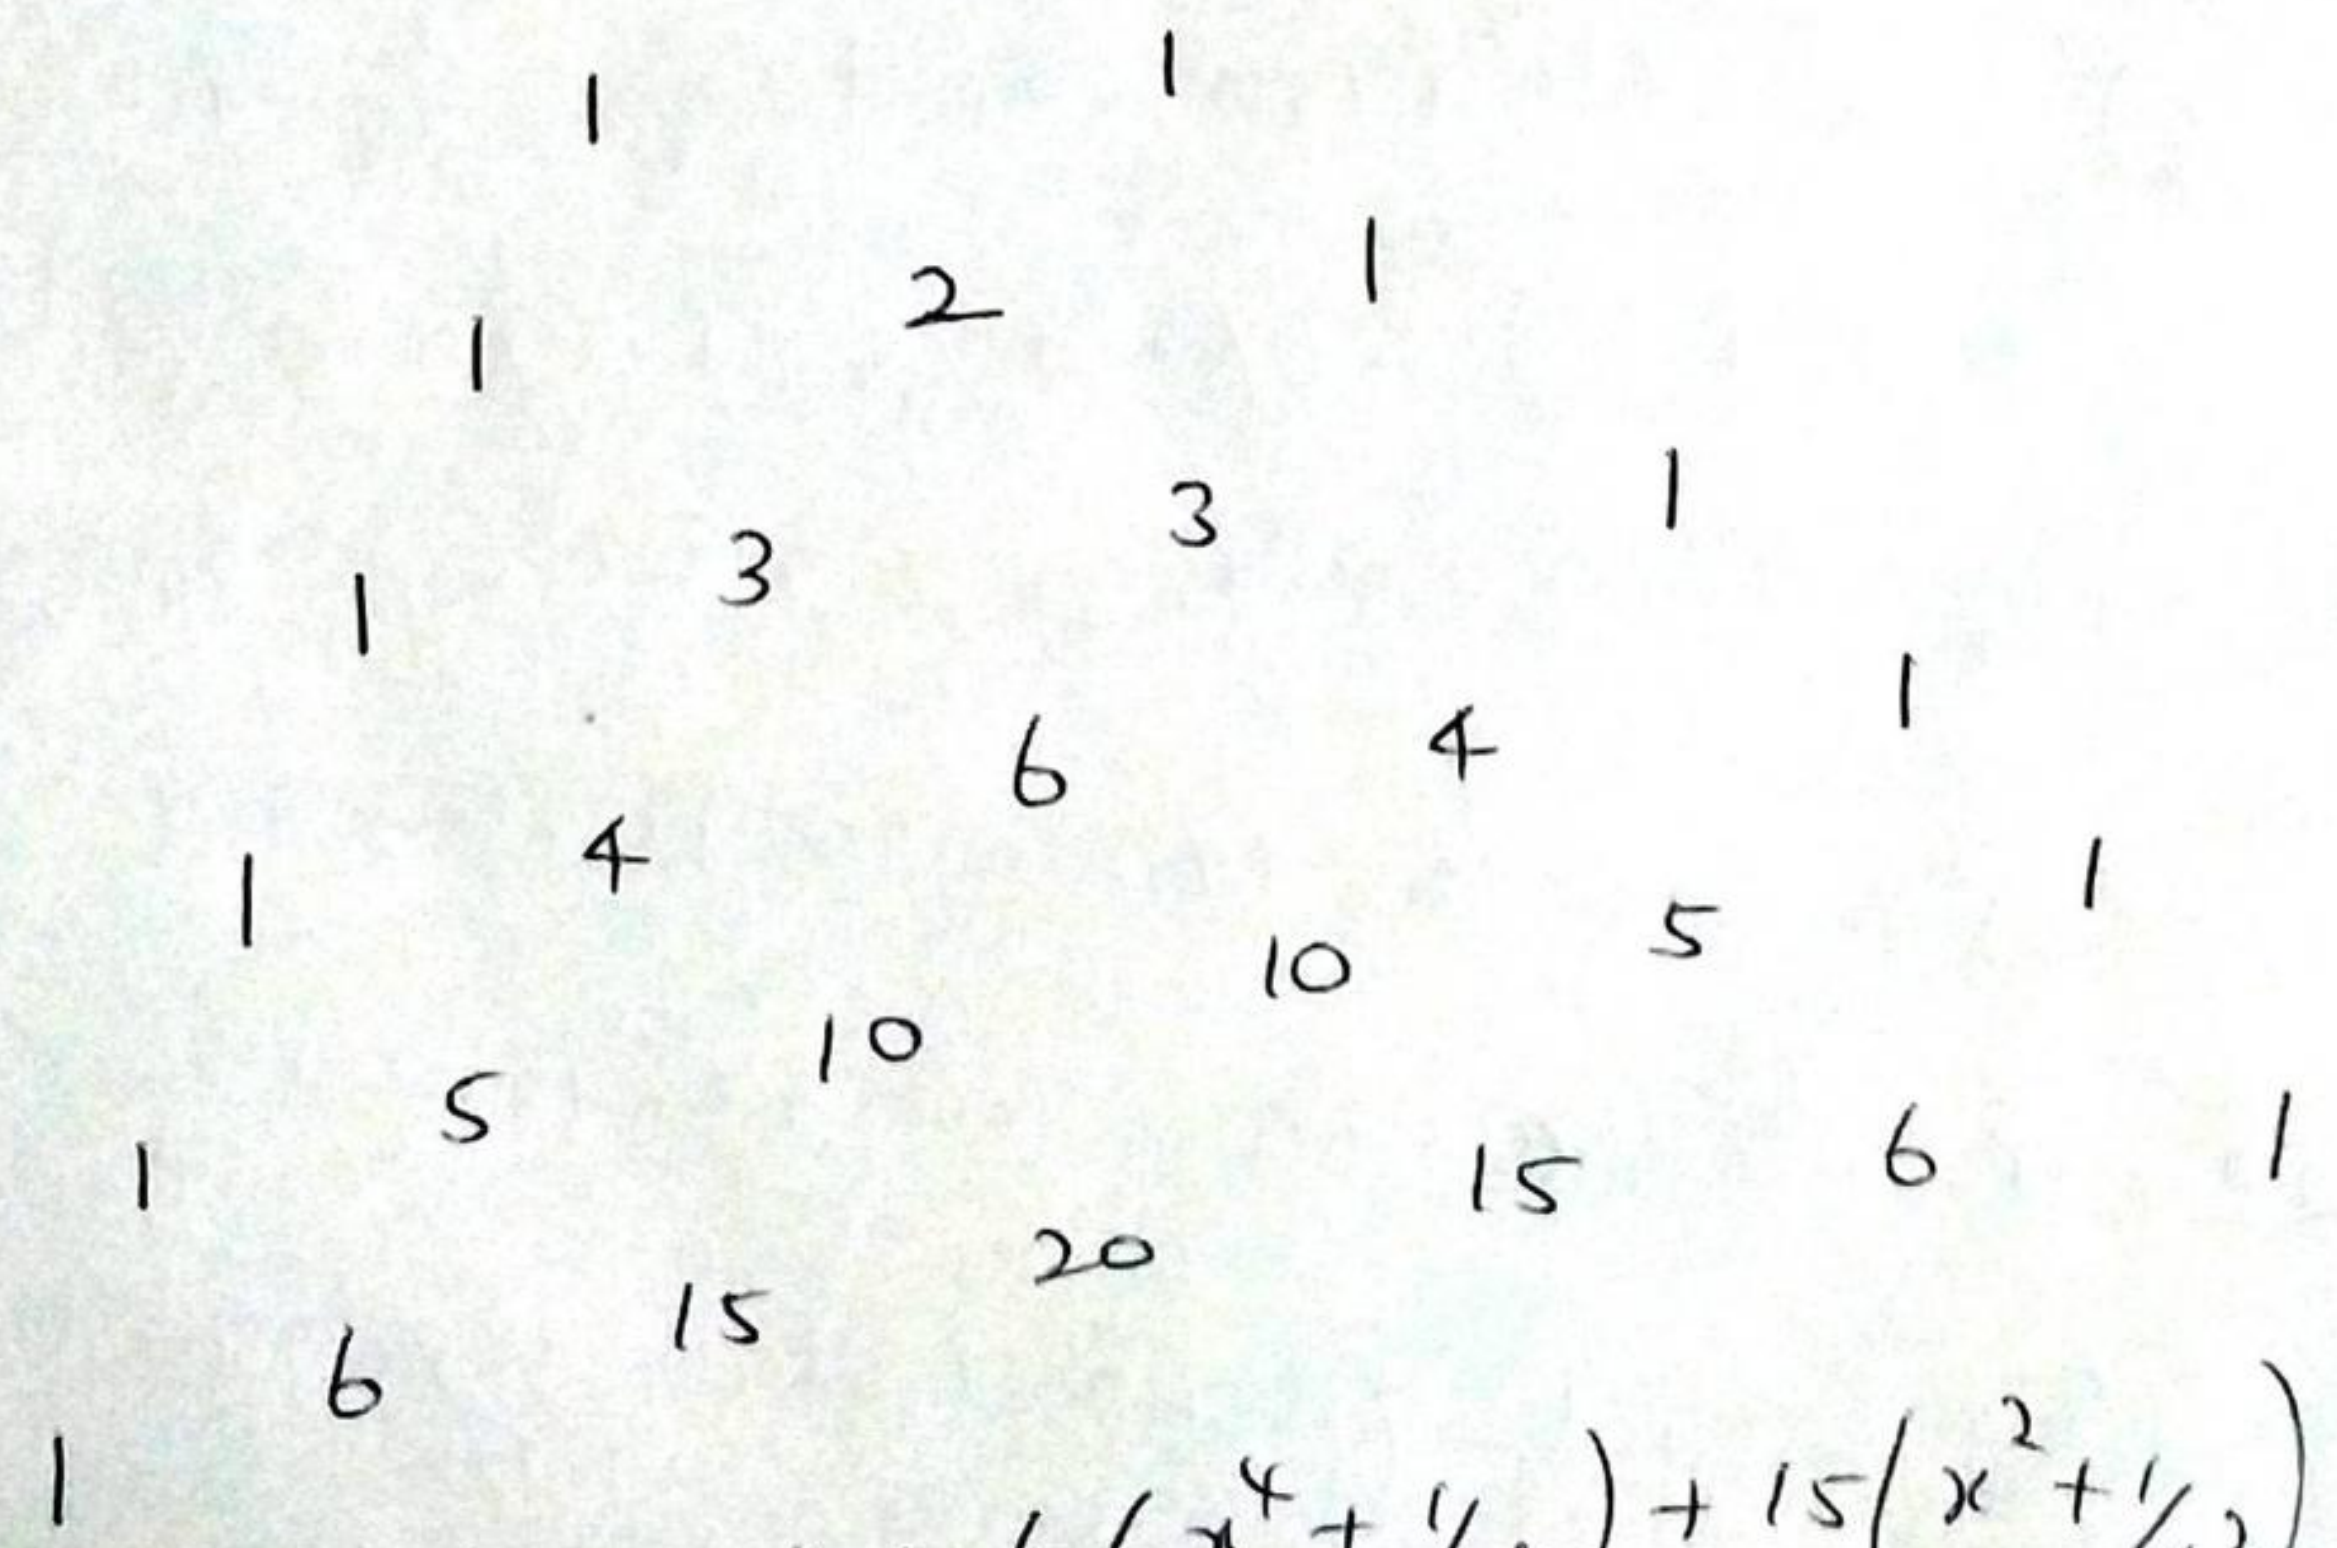 1 1
1 2 1
1 3 3 1
1 4 6 4 1
1 5 10 10 5 1
1 6 15 20 15 6 1
(x⁴ + 1/ ) + 15(x² + 1/ )